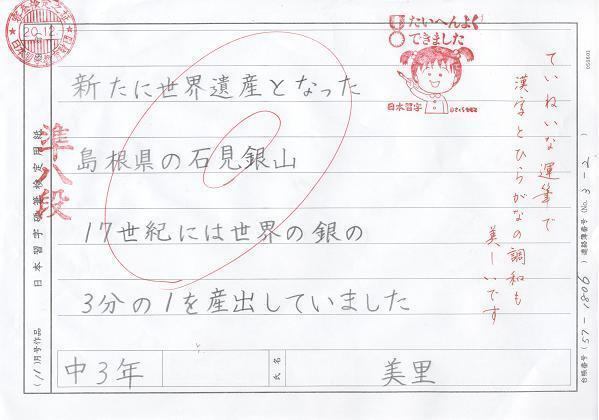 20.12.
日本習字
たいへんよく
できました
日本習字
新たに世界遺産となった
島根県の石見銀山
17世紀には世界の銀の
3分の1を産出していました
中3年
氏名
美里
ていねいな運筆で
漢字とひらがなの調和も
美しいです
準八段
日本習字硬筆検定用紙
(11)月号作品
台帳番号(57-1806)連絡簿番号(No.3-2)